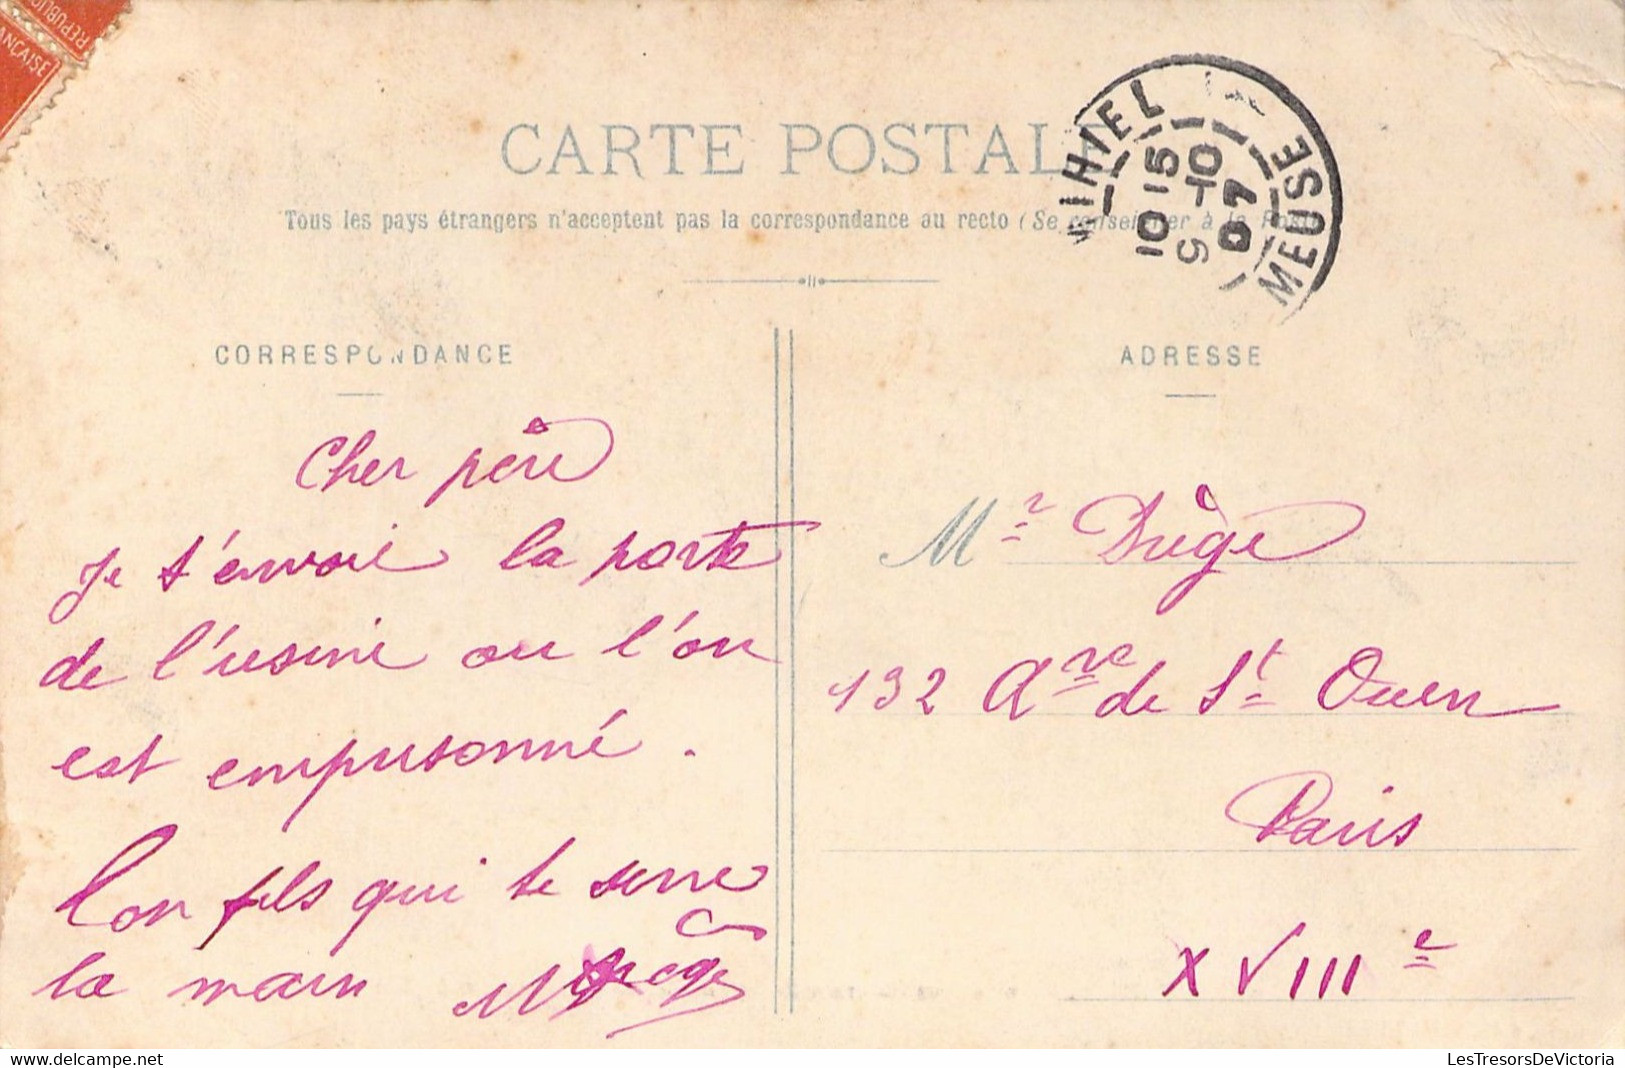 RÉPUBLIQ
ANÇAISE
CARTE POSTALE
Tous les pays étrangers n'acceptent pas la correspondance au recto (Se renseigner à la Poste
MIHIEL
MEUSE
10 15
5 -10
07
CORRESPONDANCE
Cher père
Je t'envoie la porte
de l'usine ou l'on
est empoisonné.
Ton fils qui te serre
la main
ADRESSE
Mr Drège
132 Ave de St Ouen
Paris
XVIIIe
delcampe.net
LesTresorsDeVictoria